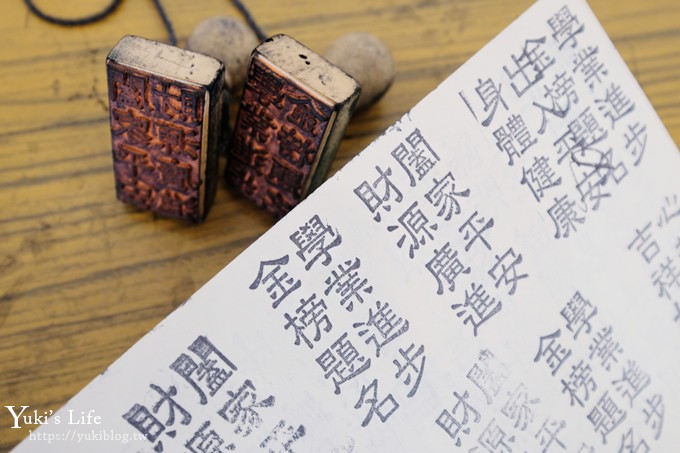 學業進步
金榜題名
身體健康
出入平安
闔家平安
財源廣進
學業進步
金榜題名
學業進步
金榜題名
心
吉祥
闔家平
財源
闔家
財源
Yuki's Life
https://yukiblog.tw